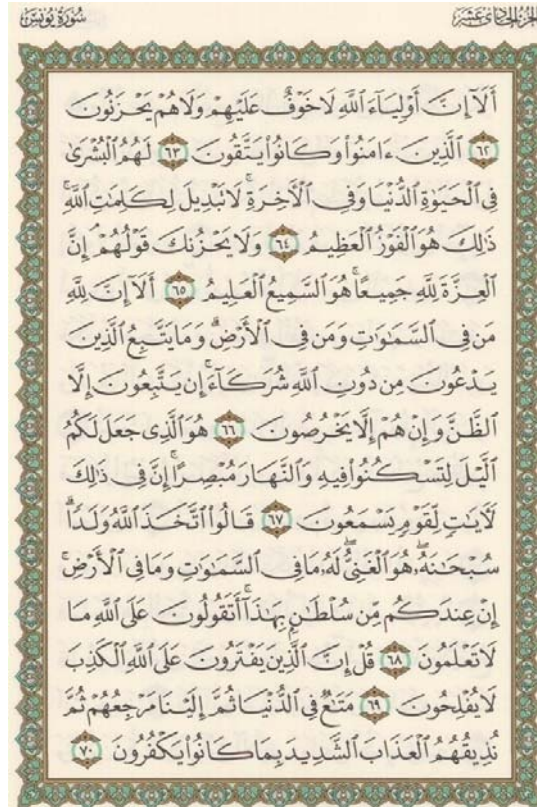 سُورَةُ يُونُسَ
الجُزْءُ الحَادِيَ عَشَرَ
أَلَآ إِنَّ أَوْلِيَآءَ ٱللَّهِ لَا خَوْفٌ عَلَيْهِمْ وَلَا هُمْ يَحْزَنُونَ
٦٢ ٱلَّذِينَ ءَامَنُوا۟ وَكَانُوا۟ يَتَّقُونَ ٦٣ لَهُمُ ٱلْبُشْرَىٰ
فِى ٱلْحَيَوٰةِ ٱلدُّنْيَا وَفِى ٱلْأَخِرَةِ ۚ لَا تَبْدِيلَ لِكَلِمَٰتِ ٱللَّهِ ۚ
ذَٰلِكَ هُوَ ٱلْفَوْزُ ٱلْعَظِيمُ ٦٤ وَلَا يَحْزُنكَ قَوْلُهُمْ ۘ إِنَّ
ٱلْعِزَّةَ لِلَّهِ جَمِيعًا ۚ هُوَ ٱلسَّمِيعُ ٱلْعَلِيمُ ٦٥ أَلَآ إِنَّ لِلَّهِ
مَن فِى ٱلسَّمَٰوَٰتِ وَمَن فِى ٱلْأَرْضِ ۗ وَمَا يَتَّبِعُ ٱلَّذِينَ
يَدْعُونَ مِن دُونِ ٱللَّهِ شُرَكَآءَ ۚ إِن يَتَّبِعُونَ إِلَّا
ٱلظَّنَّ وَإِنْ هُمْ إِلَّا يَخْرُصُونَ ٦٦ هُوَ ٱلَّذِى جَعَلَ لَكُمُ
ٱلَّيْلَ لِتَسْكُنُوا۟ فِيهِ وَٱلنَّهَارَ مُبْصِرًا ۚ إِنَّ فِى ذَٰلِكَ
لَأَيَٰتٍ لِّقَوْمٍ يَسْمَعُونَ ٦٧ قَالُوا۟ ٱتَّخَذَ ٱللَّهُ وَلَدًا ۗ
سُبْحَٰنَهُۥ ۖ هُوَ ٱلْغَنِىُّ ۖ لَهُۥ مَا فِى ٱلسَّمَٰوَٰتِ وَمَا فِى ٱلْأَرْضِ ۚ
إِنْ عِندَكُم مِّن سُلْطَٰنٍۭ بِهَٰذَآ ۚ أَتَقُولُونَ عَلَى ٱللَّهِ مَا
لَا تَعْلَمُونَ ٦٨ قُلْ إِنَّ ٱلَّذِينَ يَفْتَرُونَ عَلَى ٱللَّهِ ٱلْكَذِبَ
لَا يُفْلِحُونَ ٦٩ مَتَٰعٌ فِى ٱلدُّنْيَا ثُمَّ إِلَيْنَا مَرْجِعُهُمْ ثُمَّ
نُذِيقُهُمُ ٱلْعَذَابَ ٱلشَّدِيدَ بِمَا كَانُوا۟ يَكْفُرُونَ ٧٠